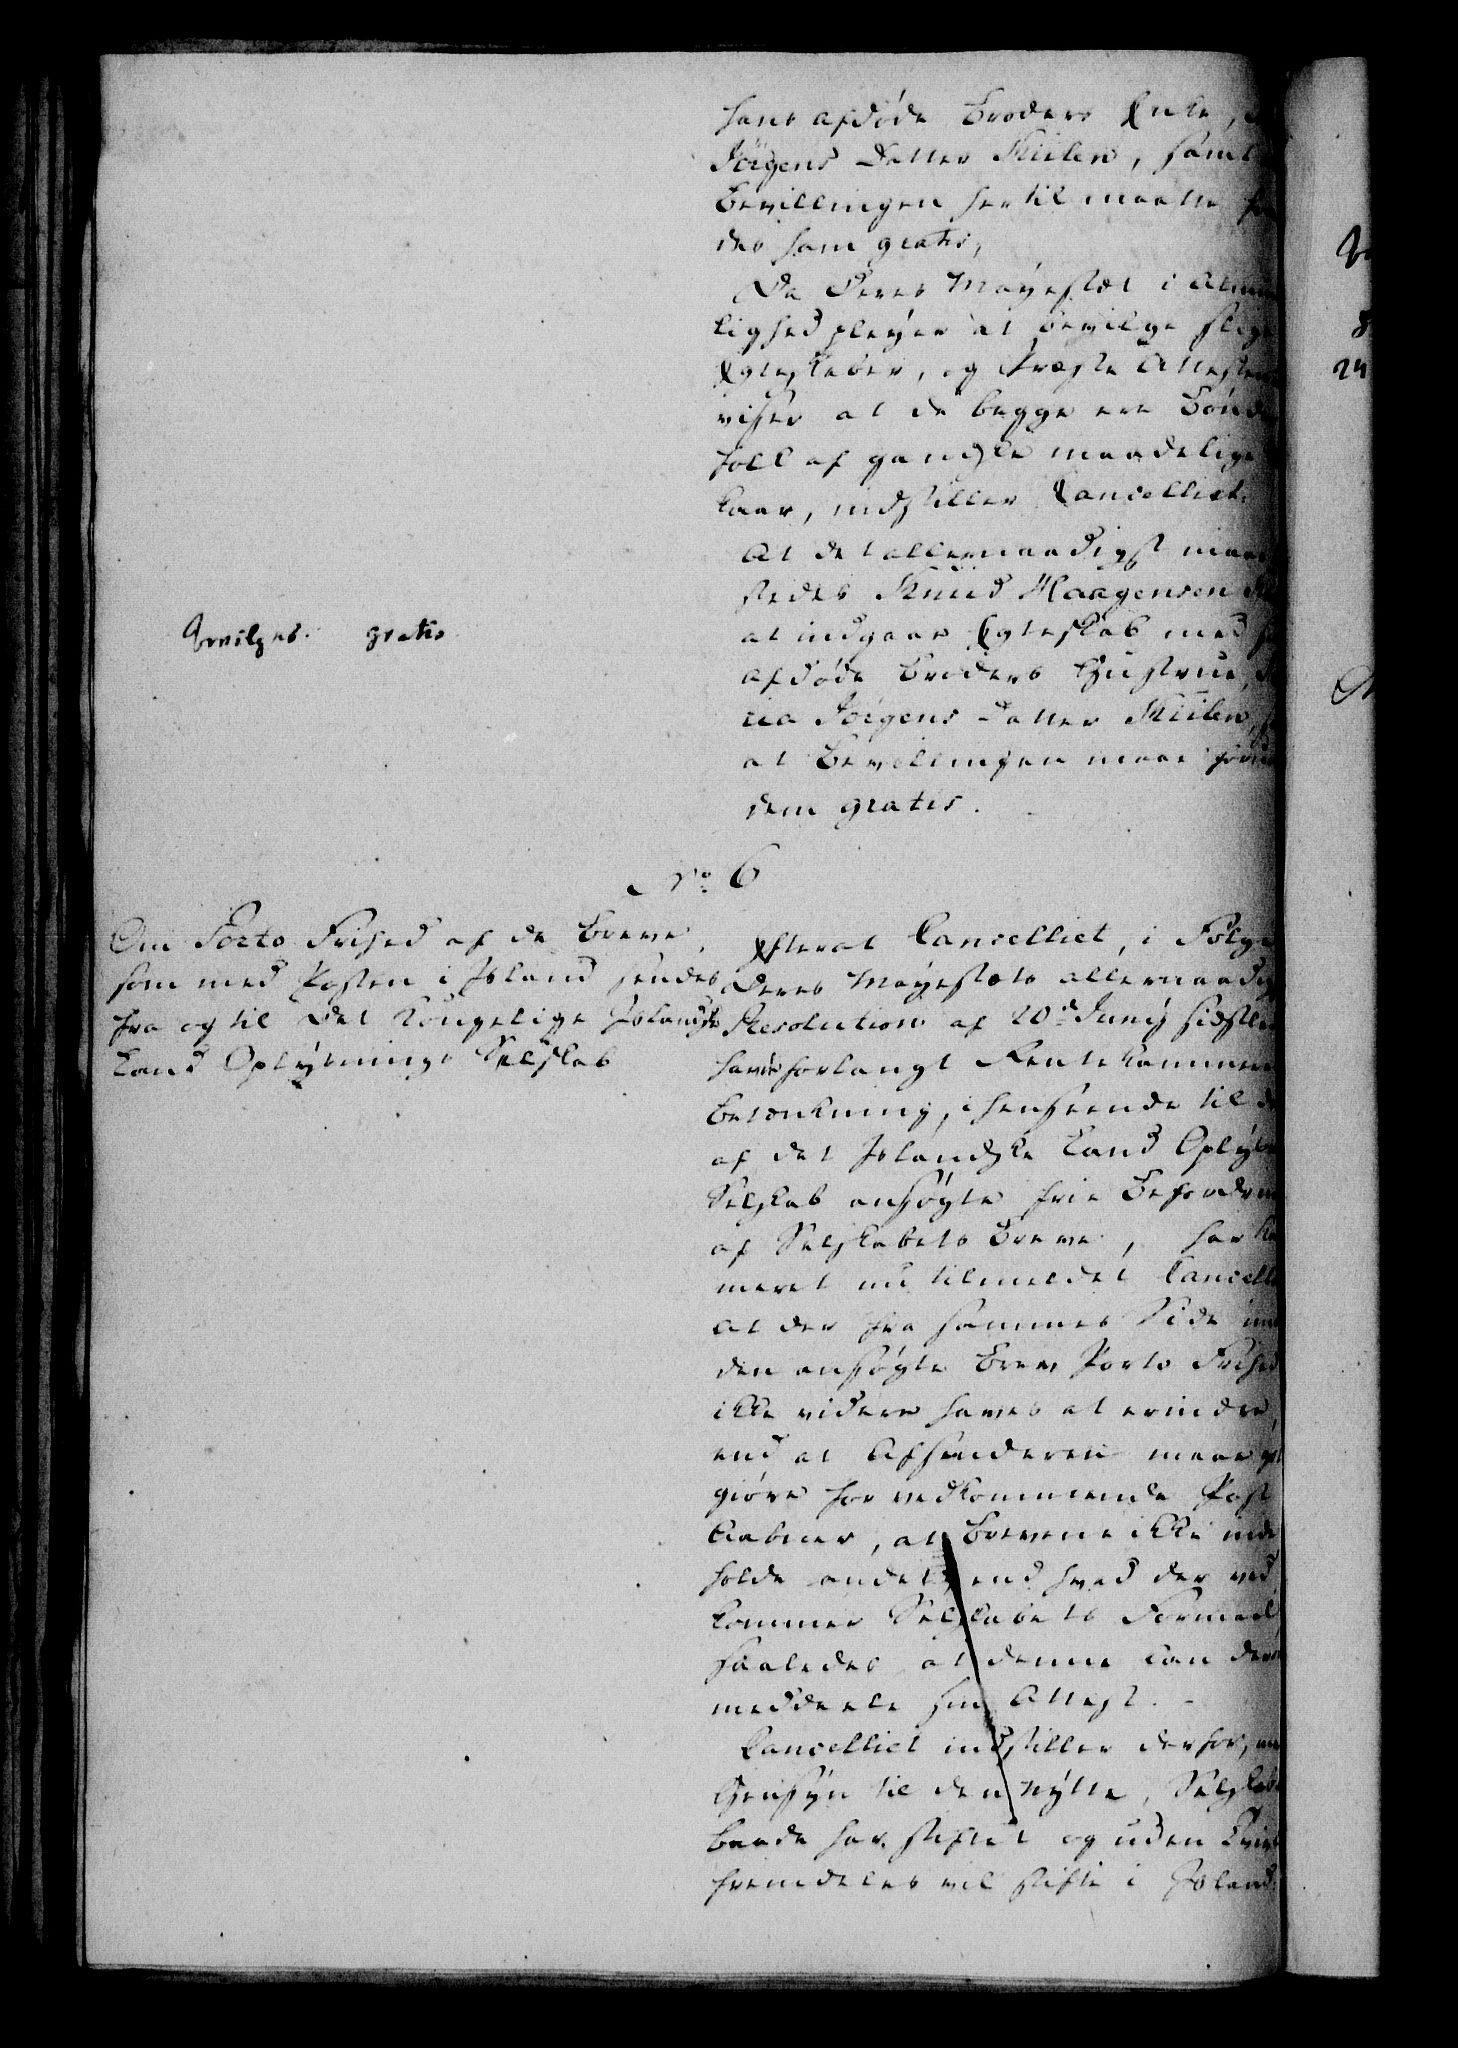 hans afdøde Broders Enke,
Jørgens Datter Kiilen, samt
Bevillingen hertil maatte
des ham gratis,
Da Deres Mayestæt i Almin
lighed pleyer at bevilge slige
Egteskaber, og Præste Attesten
viser at de begge ere Bønder
folk af gandske maadelige
Kaar, indstiller Cancelliet.
At det allernaadigst maae
stedes Knud Haagensen
at indgaae Egteskab med
afdøde Broders Hustrue,
Jørgens Datter Kiilen,
at Bevillingen maae forun
dem gratis.
Bevilges. gratis
No. 6
Om Porto Frihed af de Breve,
som med Posten i Island sendes
fra og til Det Kongelige Islandske
Land Oplysnings Selskab
Efterat Cancelliet, i Følge
Deres Mayestæts allernaadig
Resolution af 20de Juny sidstl
havde forlangt Rentekammere
Betænkning, i henseende til
af det Islandske Land Oplys
Selskab ansøgte frie Befordring
af Selskabets Breve, har Ka
meret nu tilmeldet Cancelli
at der fra sammes Side imod
den ansøgte Brev Porto Frihed
ikke videre haves at erindre,
end at Afsenderen maae
giøre for vedkommende Post
Aabner, at Brevene ikke inde
holde andet, end hvad der ved
kommer Selskabets Formaal,
saaledes at denne kan
meddeele sin Attest.
Cancelliet indstiller derfor, med
Hensyn til den Nytte, Selskabet
baade har stiftet og uden Tvivl
fremdeles vil stifte i Island: